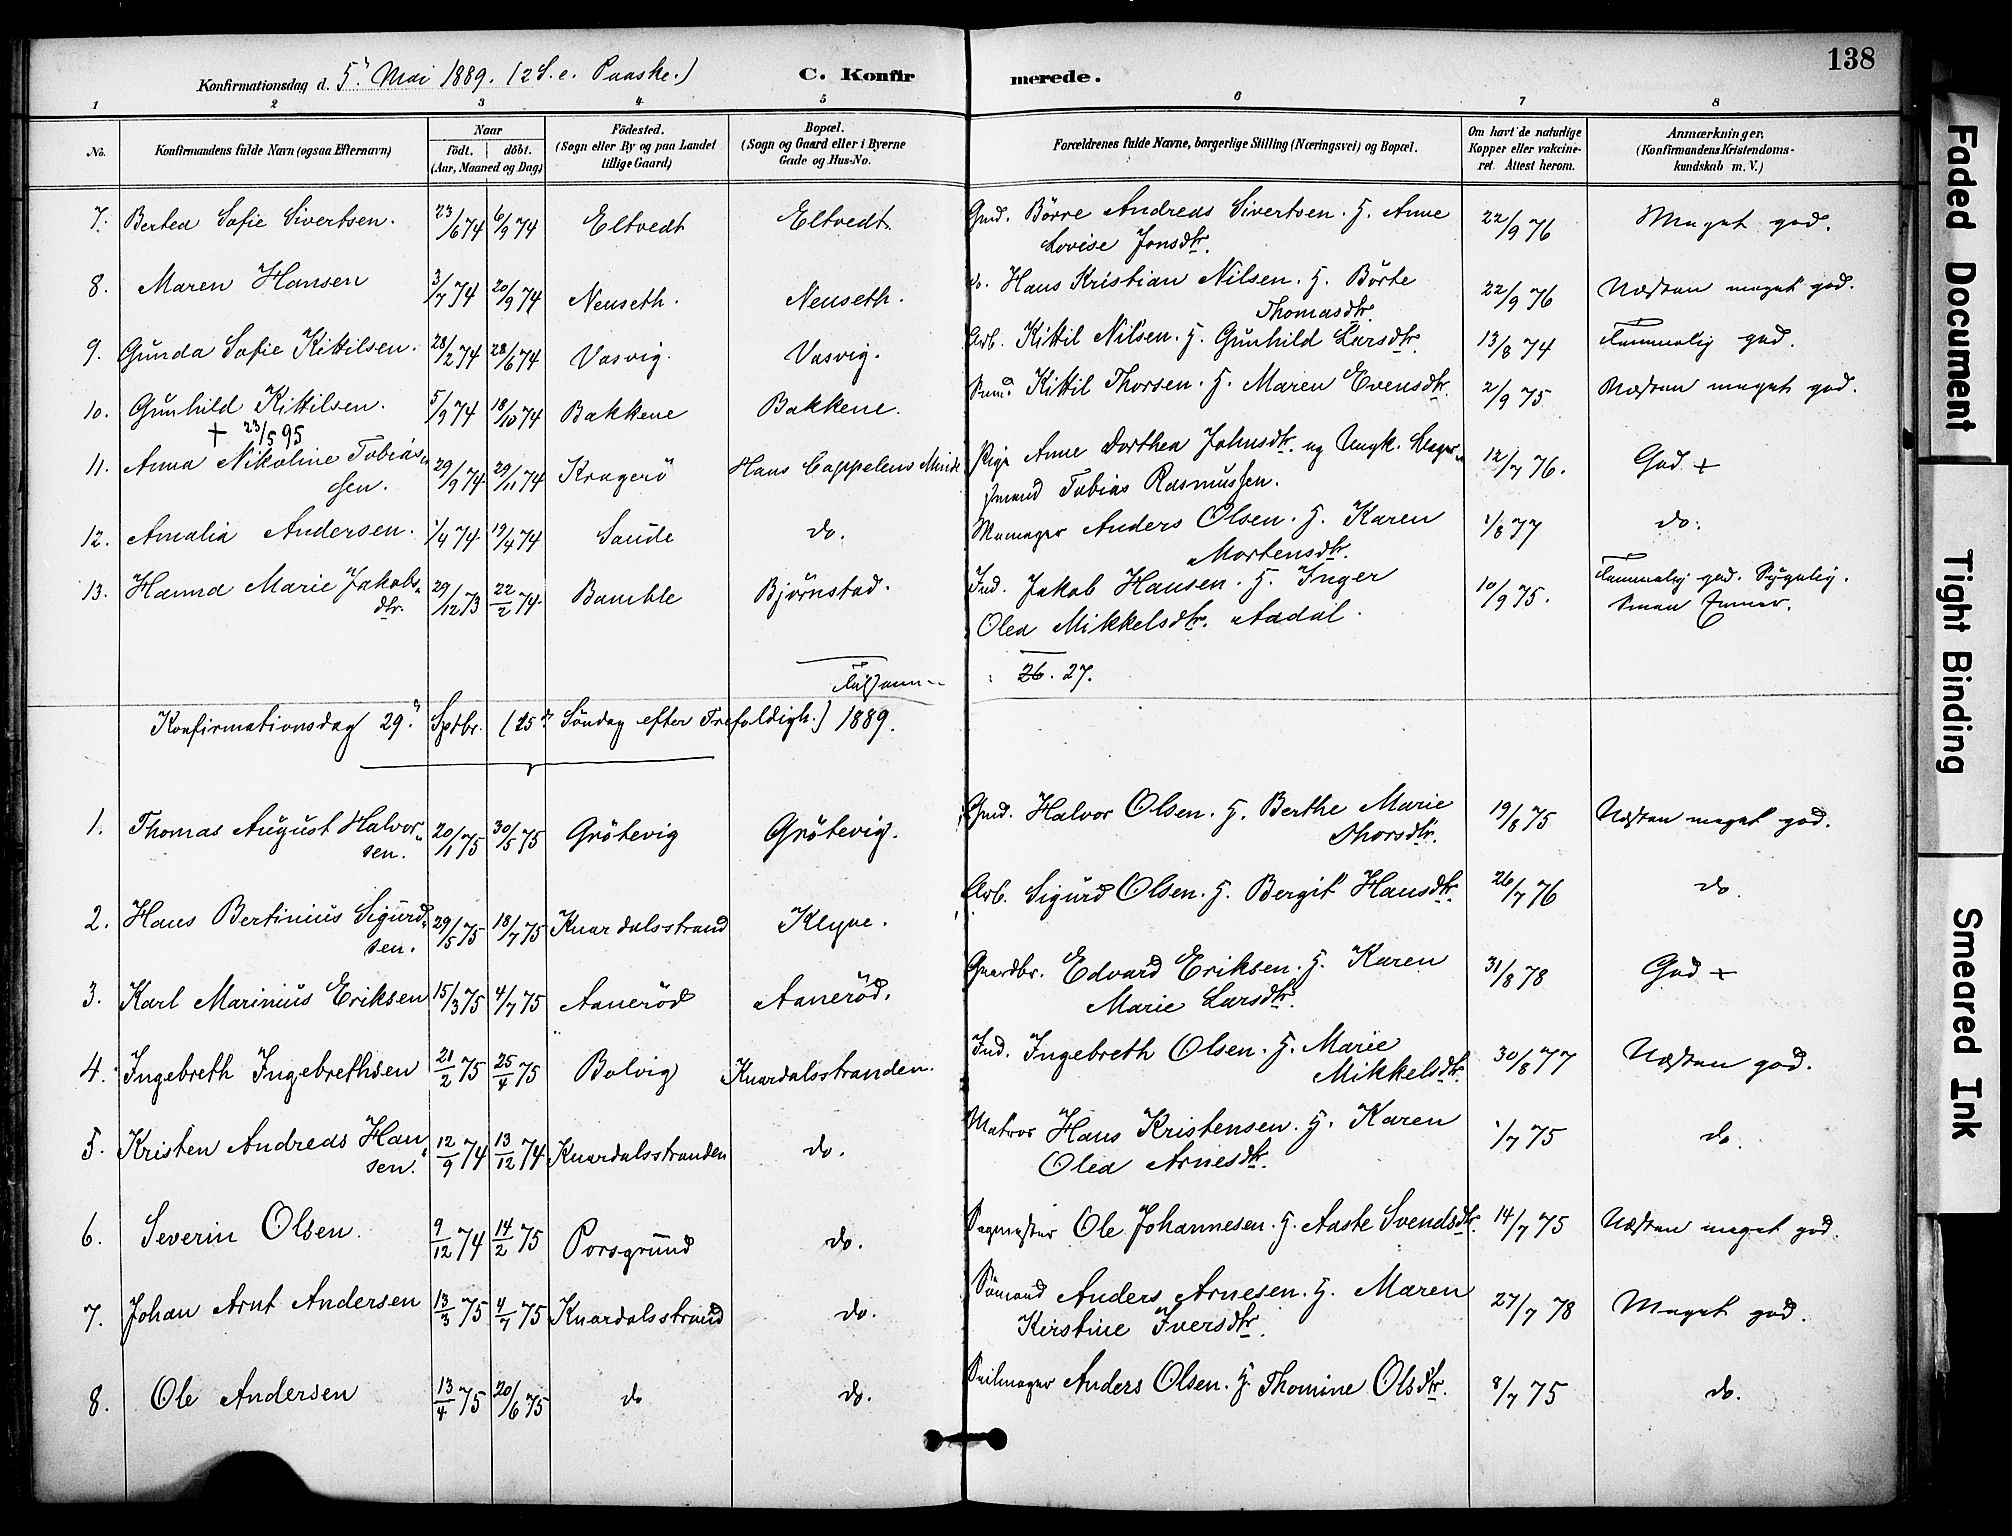 138
Konfirmationsdag d. 5' Mai 1889. (2 S. e. Paaske.) C. Konfirmerede.
1 2 3 4 5 6 7 8
No. Konfirmandens fulde Navn (ogsaa Efternavn) Naar födt. döbt. (Aar, Maaned og Dag) Födested. (Sogn eller By og paa Landet tillige Gaard) Bopæl. (Sogn og Gaard eller i Byerne Gade og Hus-No. Forældrenes fulde Navne, borgerlige Stilling (Næringsvei) og Bopæl. Om havt de naturlige Kopper eller vakcineret. Attest herom. Anmærkninger. (Konfirmandens Kristendomskundskab m. V.)
7. Berthea Sofie Sivertsen. 23/6 74 6/9 74 Eltvedt Eltvedt. Gmd. Börre Andreas Sivertsen. H. Anne 22/9 76 Meget god.
Lovise Jonsdtr.
8. Maren Hansen 3/7 74 20/9 74 Neuseth. Neuseth. do. Hans Kristian Nilsen. H. Börte 22/9 76 Næsten meget god.
Thomasdtr.
9. Gunda Sofie Kittilsen. 28/2 74 28/6 74 Vasvig. Vasvig. Arb. Kittil Nilsen. H. Gunhild Larsdtr. 13/8 74 Temmelig god.
10. Gunhild Kittilsen. 5/9 74 18/10 74 Bakkene Bakkene. Kittil Thorsen. H. Maren Evensdtr. 2/9 75 Næsten meget god.
+ 23/5 95
11. Anna Nikoline Tobias- 29/9 74 29/11 74 Kragerö Hans Cappelens Minde Pige Anne Dorthea Johnsdtr. og Ungk.
sen. Tobias Rasmussen. 12/7 76. God +
12. Amalia Andersen. 1/4 74 19/4 74 Saude do. Anders Olsen. H. Karen 1/8 77 do.
Mortensdtr.
13. Hanna Marie Jakobs- 29/12 73 22/2 74 Bamble Björnstad. Ind. Jakob Hansen. H. Inger 10/9 75. Temmelig god. Sygelig.
dtr. Olea Mikkelsdtr. Aadal.
26. 27.
Konfirmationsdag 29. Sptbr. (15de Söndag efter Trefoldigh.) 1889.
1. Thomas August Halvor- 20/1 75 30/5 75 Grötevig Grötevig. Gmd. Halvor Olsen. H. Berthe Marie 19/8 75 Næsten meget god.
sen. Thorsdtr.
2. Hans Bertinius Sigurd- 29/5 75 18/7 75 Knardalsstrand Klyve. Arb. Sigurd Olsen. H. Bergit Hansdtr. 26/7 76 do.
sen.
3. Karl Marinius Eriksen 15/3 75 4/7 75 Aaneröd Aaneröd. Gaardbr. Edvard Eriksen. H. Karen 31/8 78 God +
Marie Larsdtr.
4. Ingebreth Ingebrethsen 21/2 75 25/4 75 Bolvig Knardalsstranden. Ind. Ingebreth Olsen. H. Marie 30/8 77 Næsten god.
Mikkelsdtr.
5. Kristen Andreas Han- 12/9 74 13/12 74 Knardalsstranden do. Matros Hans Kristensen. H. Karen 1/7 75 do.
sen. Olea Arnesdtr.
6. Severin Olsen. 9/12 74 14/2 75 Porsgrund do. Sagmester Ole Johannesen. H. Aaste Svendsdtr. 14/7 75 Næsten meget god.
7. Johan Arnt Andersen 13/3 75 4/7 75 Knardalsstrand do. Sömand Anders Arnesen. H. Maren 27/7 78 Meget god.
Kirstine Iversdtr.
8. Ole Andersen 13/4 75 20/6 75 do do. Seilmager Anders Olsen. H. Thomine Olsdtr. 8/7 75 do.
Faded Document
Tight Binding
Smeared Ink